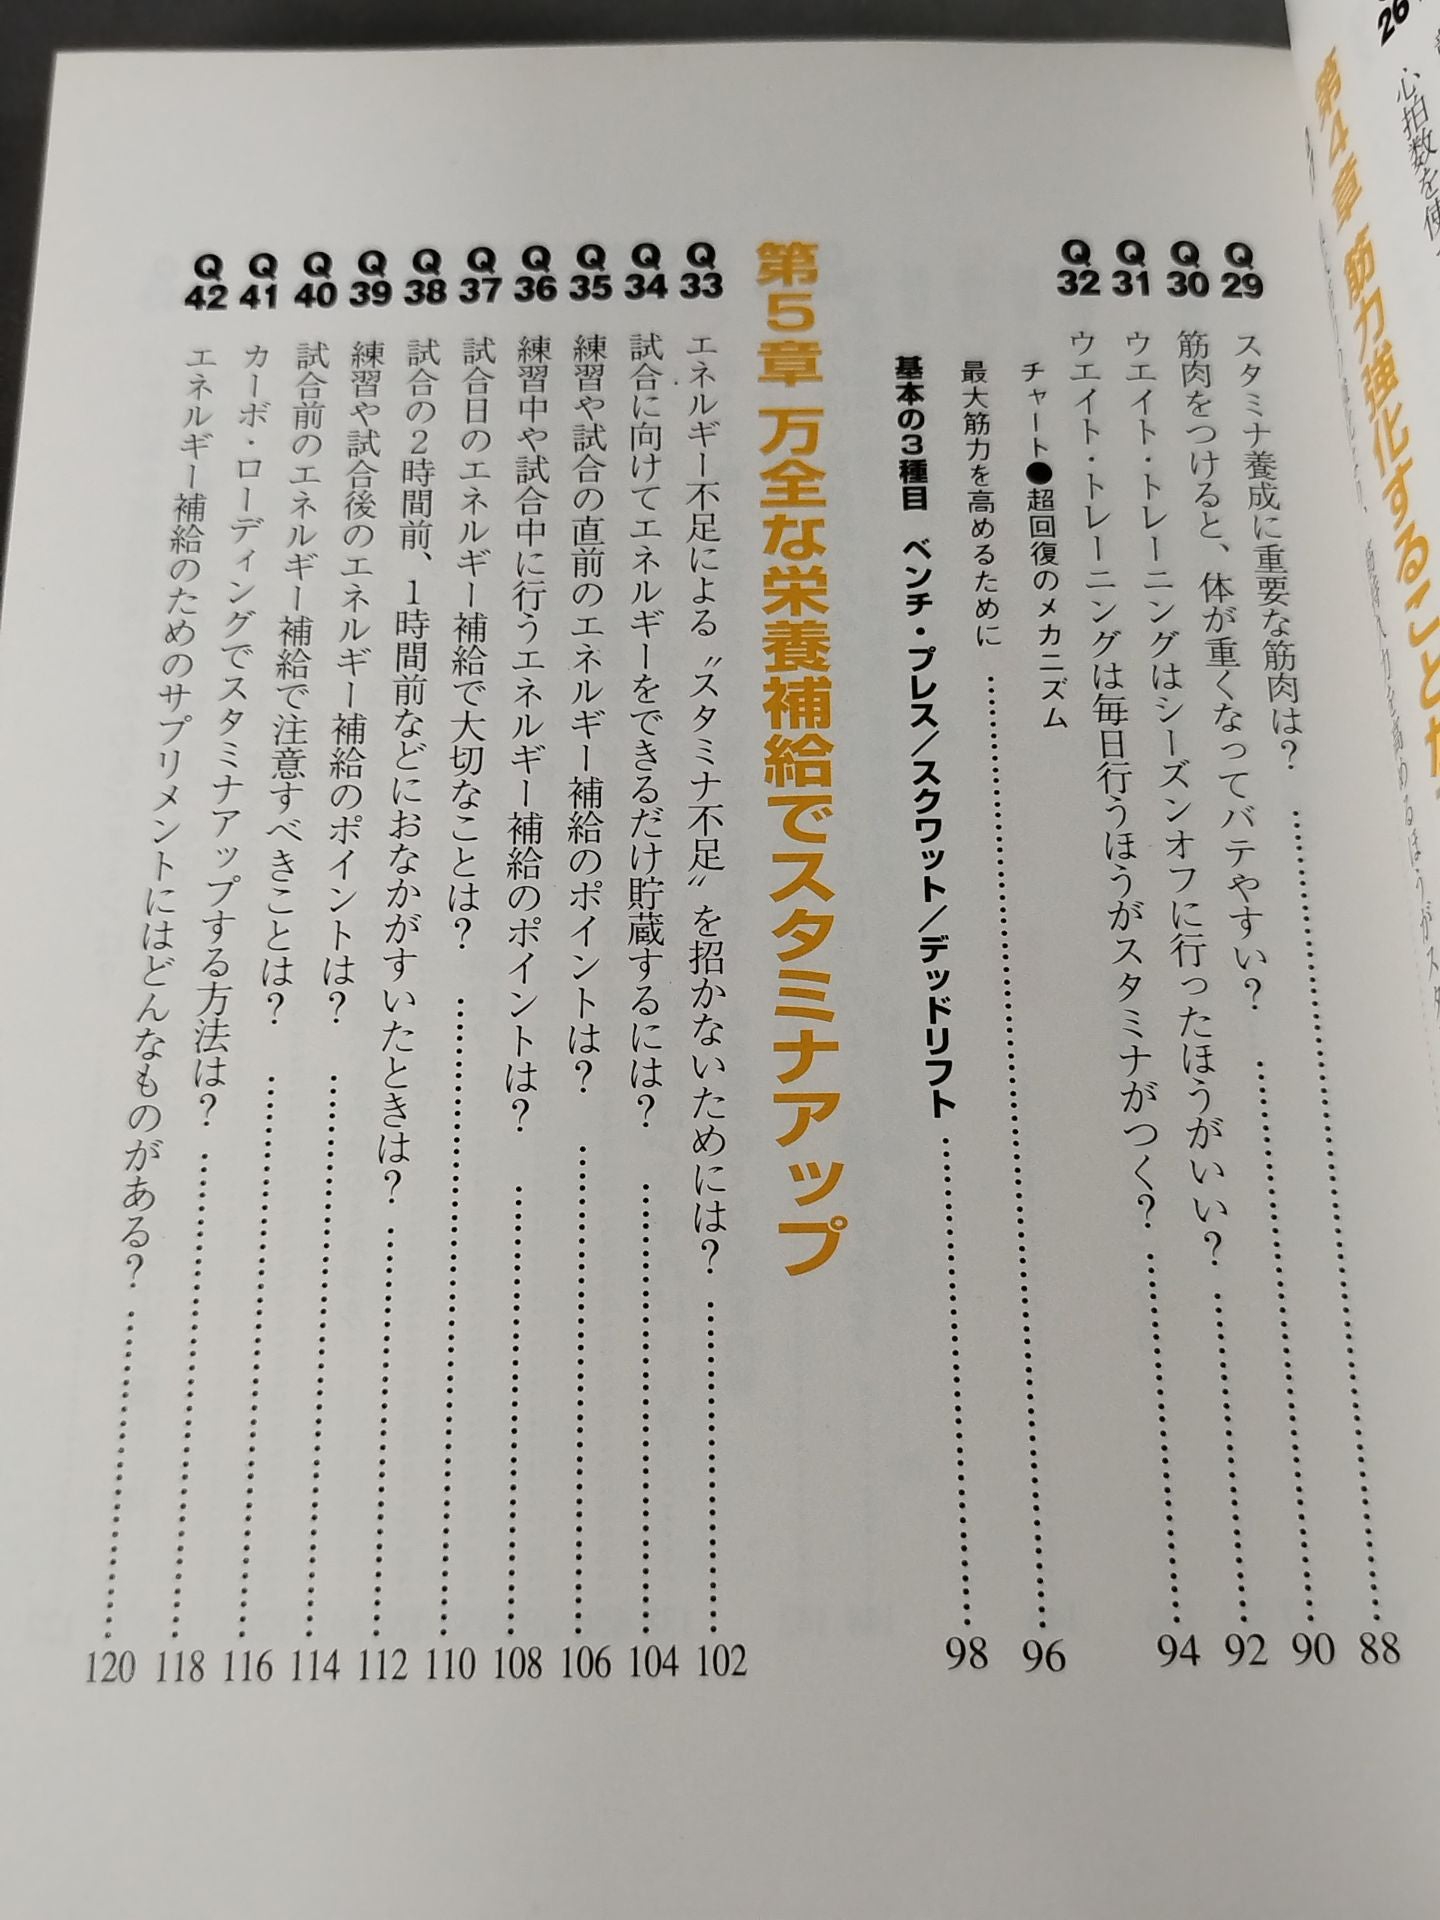 26
心拍数を使
第4章 筋力強化することが
Q29 スタミナ養成に重要な筋肉は？ 88
Q30 筋肉をつけると、体が重くなってバテやすい？ 90
Q31 ウエイト・トレーニングはシーズンオフに行ったほうがいい？ 92
Q32 ウエイト・トレーニングは毎日行うほうがスタミナがつく？ 94
チャート●超回復のメカニズム
最大筋力を高めるために 96
基本の3種目 ベンチ・プレス／スクワット／デッドリフト 98
第5章 万全な栄養補給でスタミナアップ
Q33 エネルギー不足による〝スタミナ不足〟を招かないためには？ 102
Q34 試合に向けてエネルギーをできるだけ貯蔵するには？ 104
Q35 練習や試合の直前のエネルギー補給のポイントは？ 106
Q36 練習中や試合中に行うエネルギー補給のポイントは？ 108
Q37 試合日のエネルギー補給で大切なことは？ 110
Q38 試合の2時間前、1時間前などにおなかがすいたときは？ 112
Q39 練習や試合後のエネルギー補給のポイントは？ 114
Q40 試合前のエネルギー補給で注意すべきことは？ 116
Q41 カーボ・ローディングでスタミナアップする方法は？ 118
Q42 エネルギー補給のためのサプリメントにはどんなものがある？ 120